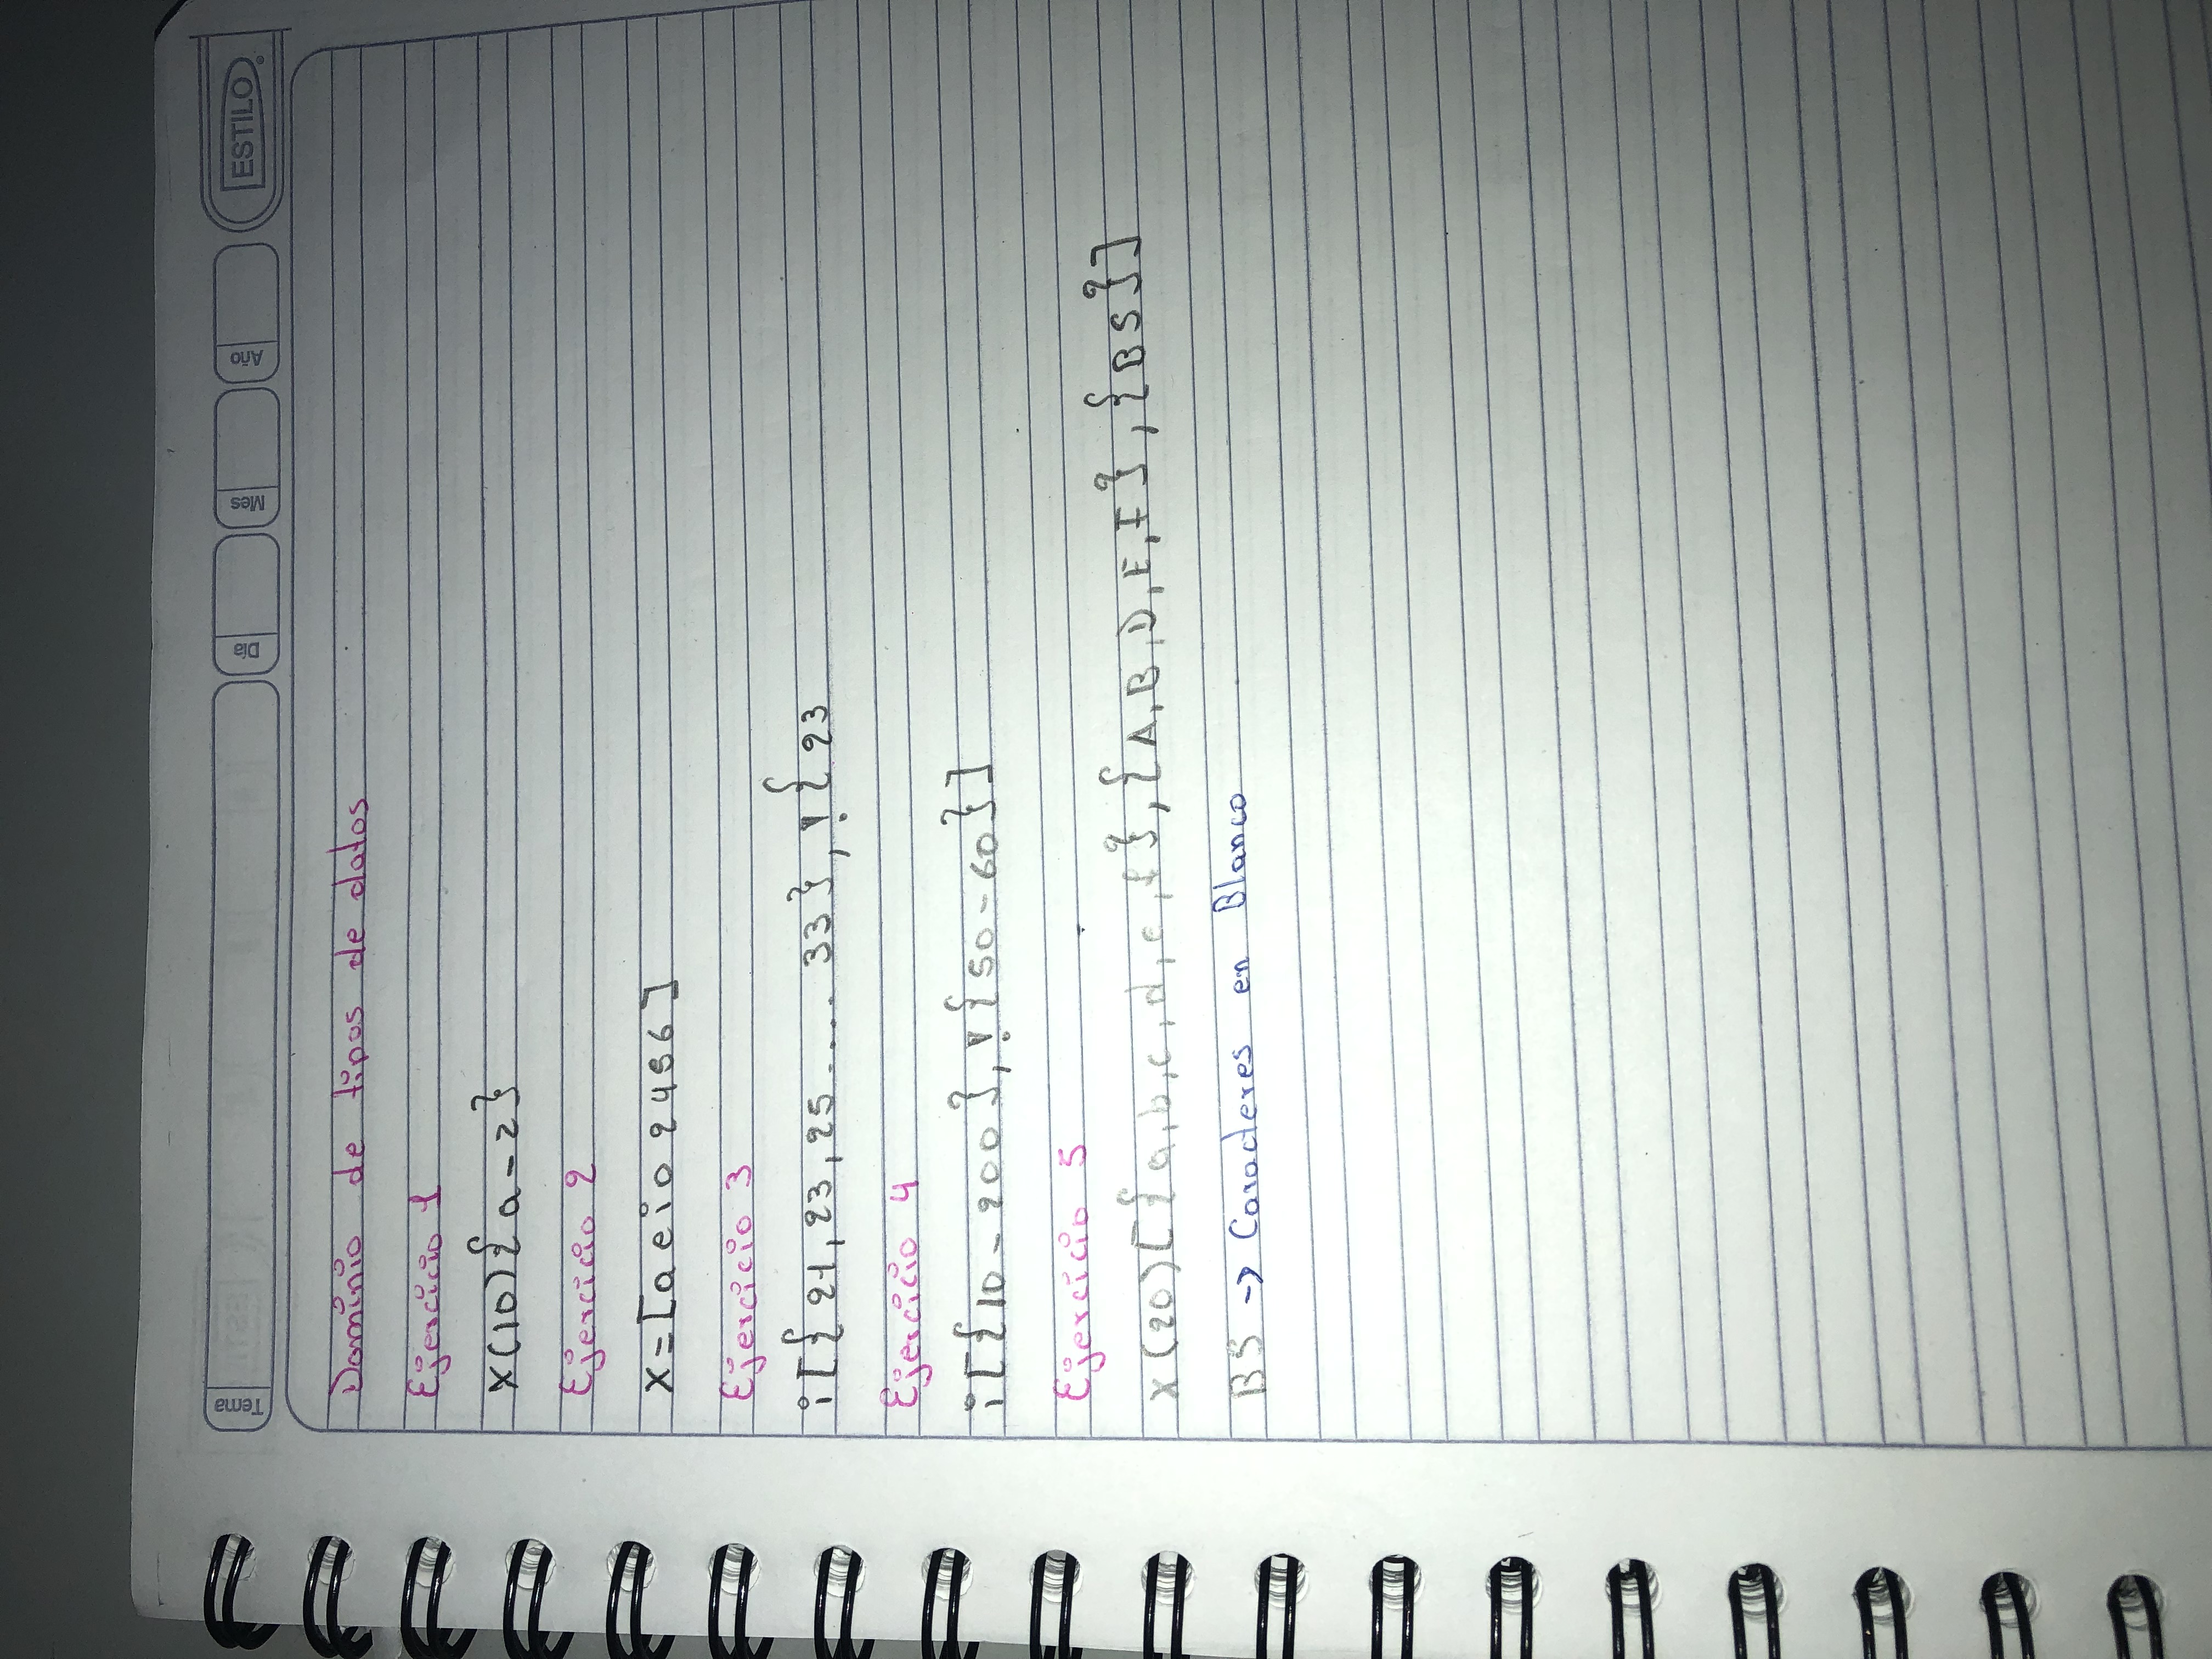 Tema Día Mes Año ESTILO
Dominio de tipos de datos
Ejercicio 1
x(10){a-z}
Ejercicio 2
x=[a e i o 2 4 5 6]
Ejercicio 3
i[{21,23,25.... 33},!{23
Ejercicio 4
i[{10-200},!{50-60}]
Ejercicio 5
x(20)[{a,b,c,d,e,f},{A,B,D,E,F},{BS}]
BS -> Caracteres en Blanco